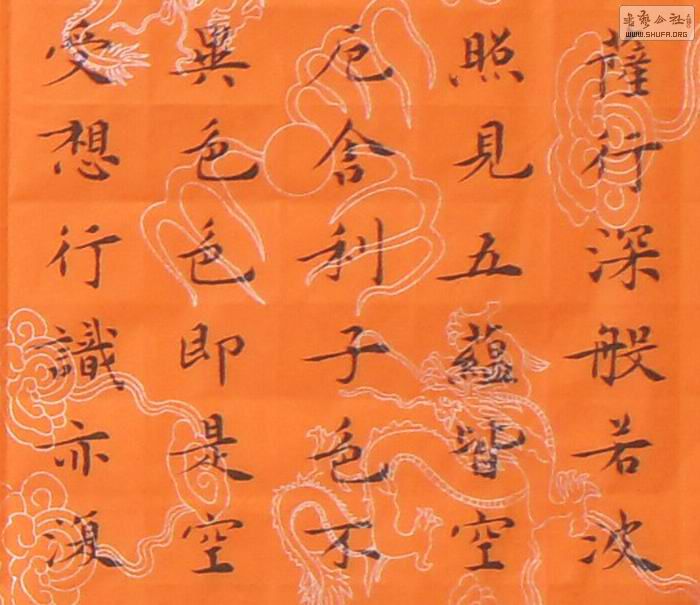 薩行深般若波
照見五蘊皆空
厄舍利子色不
異色色即是空
受想行識亦復
書藝公社
WWW.SHUFA.ORG